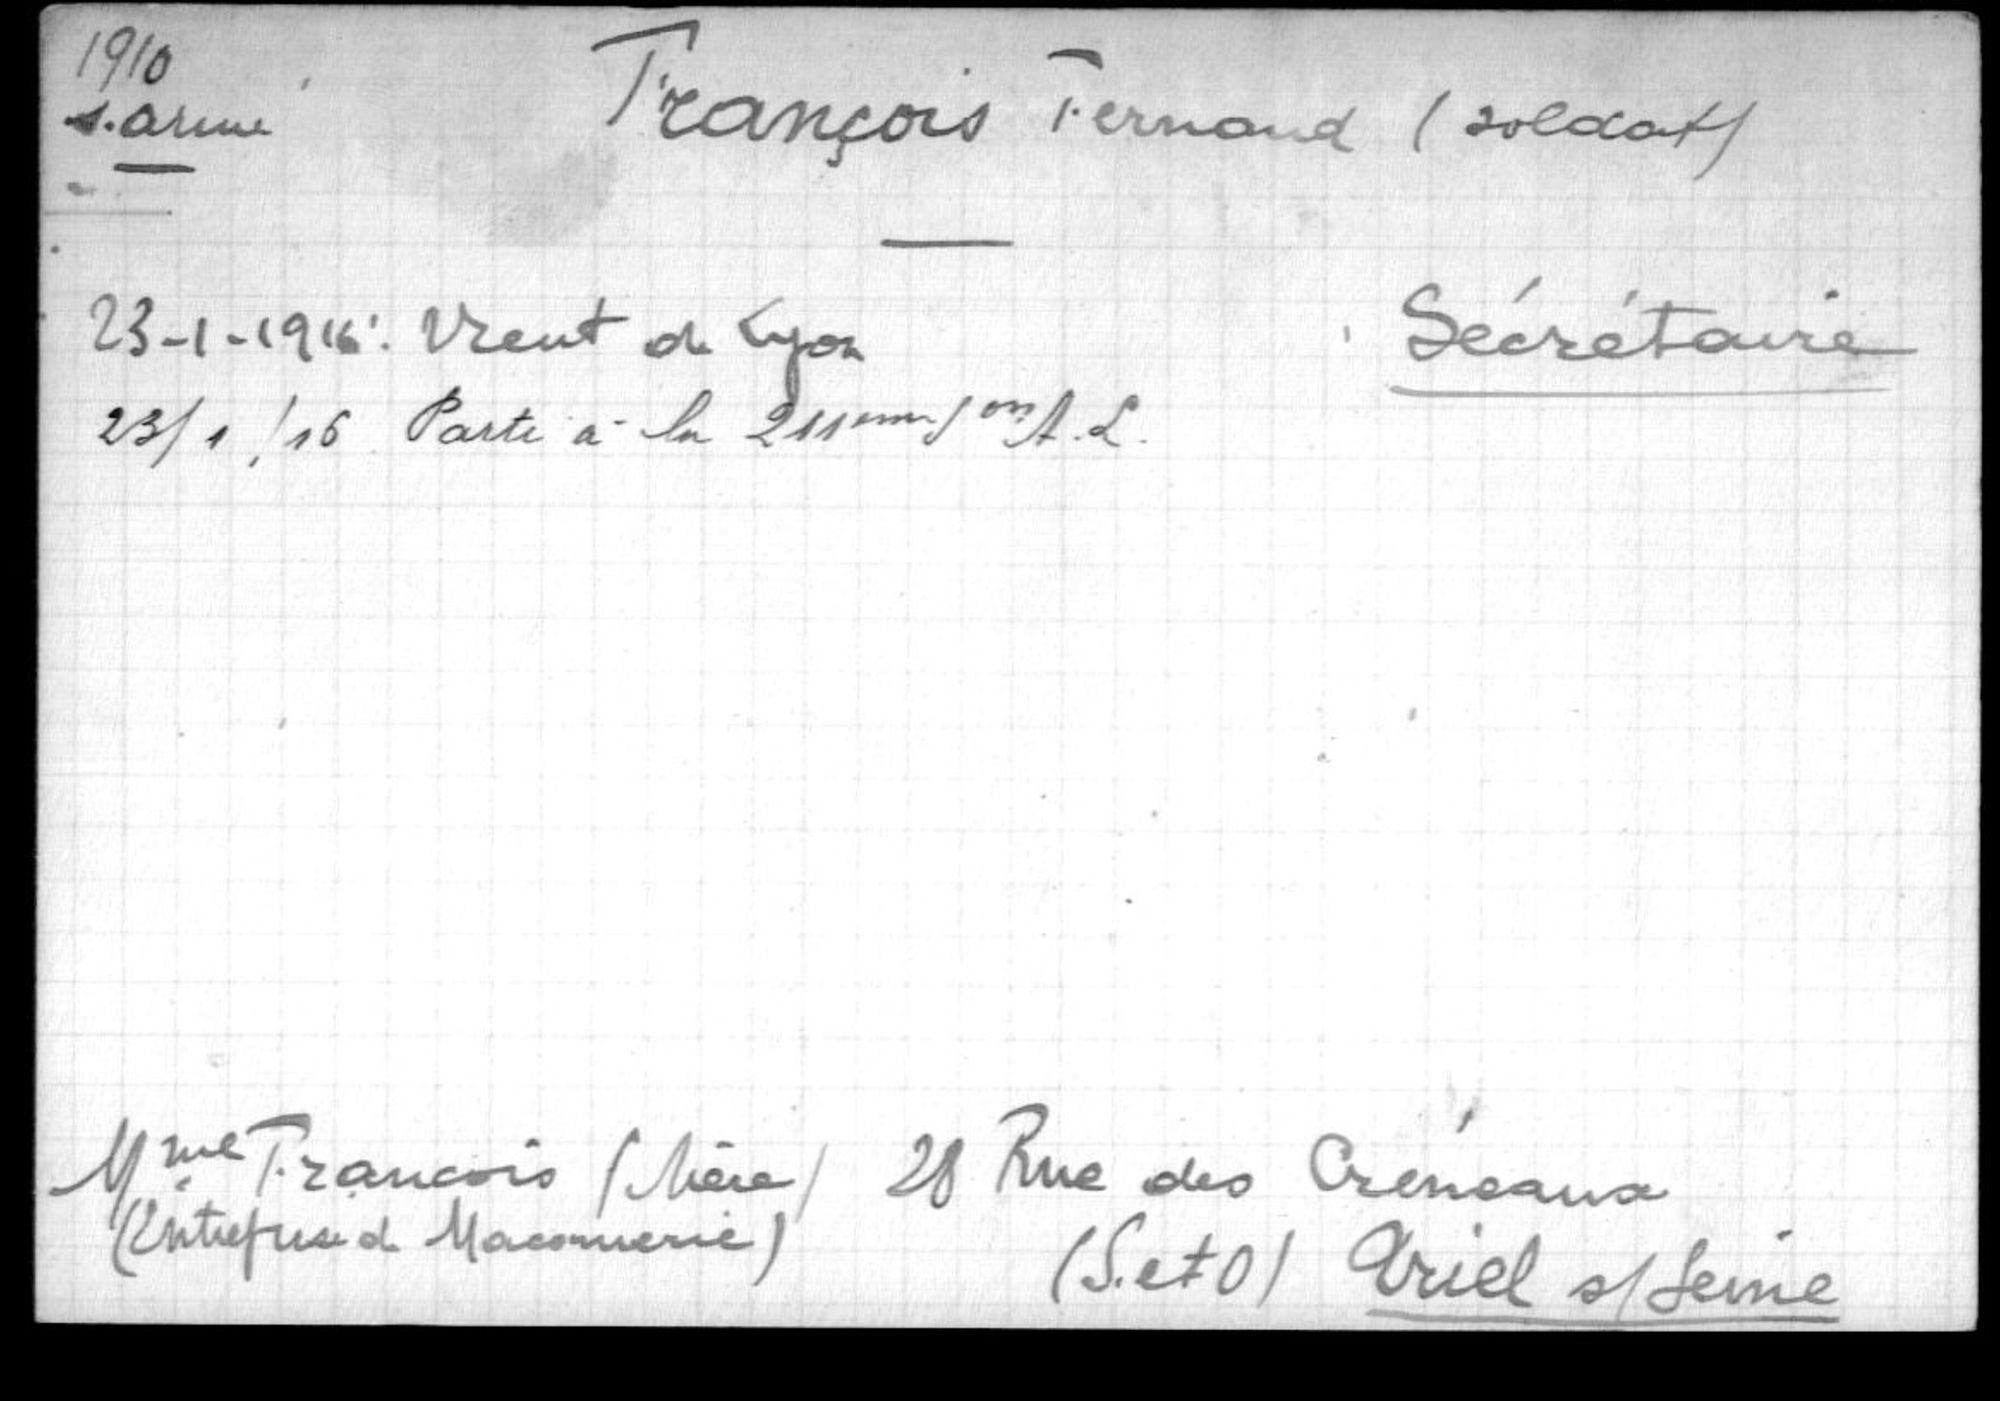 1910
s. armé
François Fernand (soldat)
23-1-1916. Vient de Lyon
Sécrétaire
23/1/16 Parti à la 211eme son A.L.
Mme François (Mère) 28 Rue des Créneaux
(Entreprise de Maconnerie)
(S. et O) Triel s/ Seine